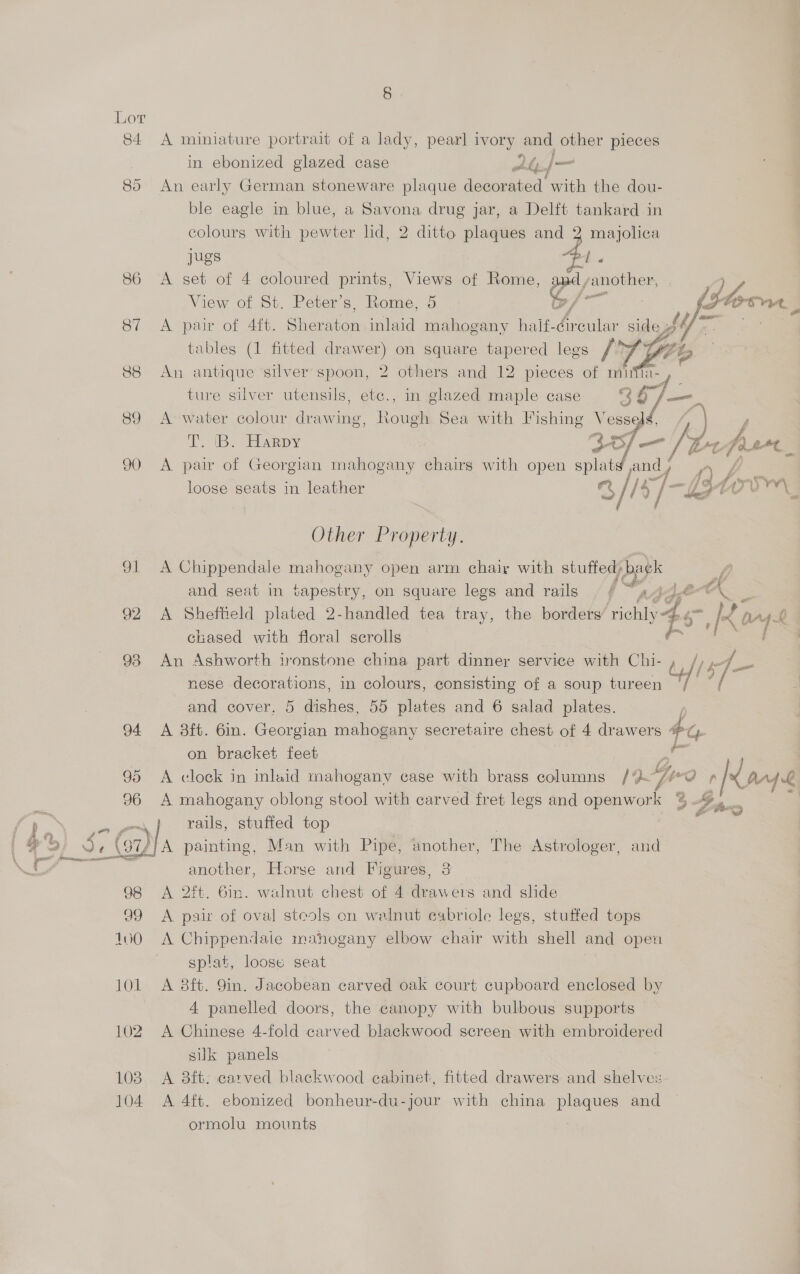 8
Lot
84 A miniature portrait of a lady, pearl ivory and other pieces
in ebonized glazed case 26/-
85 An early German stoneware plaque decorated with the dou-
ble eagle in blue, a Savona drug jar, a Delft tankard in
colours with pewter lid, 2 ditto plaques and 2 majolica
jugs
86 A set of 4 coloured prints, Views of Rome, and another,
View of St. Peter's, Rome, 5
87 A pair of 4ft. Sheraton inlaid mahogany half-circular side
tables (1 fitted drawer) on square tapered legs
88 An antique silver spoon, 2 others and 12 pieces of minia-
ture silver utensils, etc., in glazed maple case
89 A water colour drawing, Rough Sea with Fishing Vessels,
T. B. Hardy 30/-
90 A pair of Georgian mahogany chairs with open splats and
loose seats in leather
Other Property.
91 A Chippendale mahogany open arm chair with stuffed back
and seat in tapestry, on square legs and rails
92 A Sheffield plated 2-handled tea tray, the borders richly
chased with floral scrolls
93 An Ashworth ironstone china part dinner service with Chi-
nese decorations, in colours, consisting of a soup tureen
and cover, 5 dishes, 55 plates and 6 salad plates.
94 A 3ft. 6in. Georgian mahogany secretaire chest of 4 drawers
on bracket feet
95 A clock in inlaid mahogany case with brass columns
96 A mahogany oblong stool with carved fret legs and openwork
rails, stuffed top
97 A painting, Man with Pipe, another, The Astrologer, and
another, Horse and Figures, 3
98 A 2ft. 6in. walnut chest of 4 drawers and slide
99 A pair of oval stools on walnut cabriole legs, stuffed tops
100 A Chippendale mahogany elbow chair with shell and open
splat, loose seat
101 A 3ft. 9in. Jacobean carved oak court cupboard enclosed by
4 panelled doors, the canopy with bulbous supports
102 A Chinese 4-fold carved blackwood screen with embroidered
silk panels
103 A 3ft. carved blackwood cabinet, fitted drawers and shelves
104 A 4ft. ebonized bonheur-du-jour with china plaques and
ormolu mounts